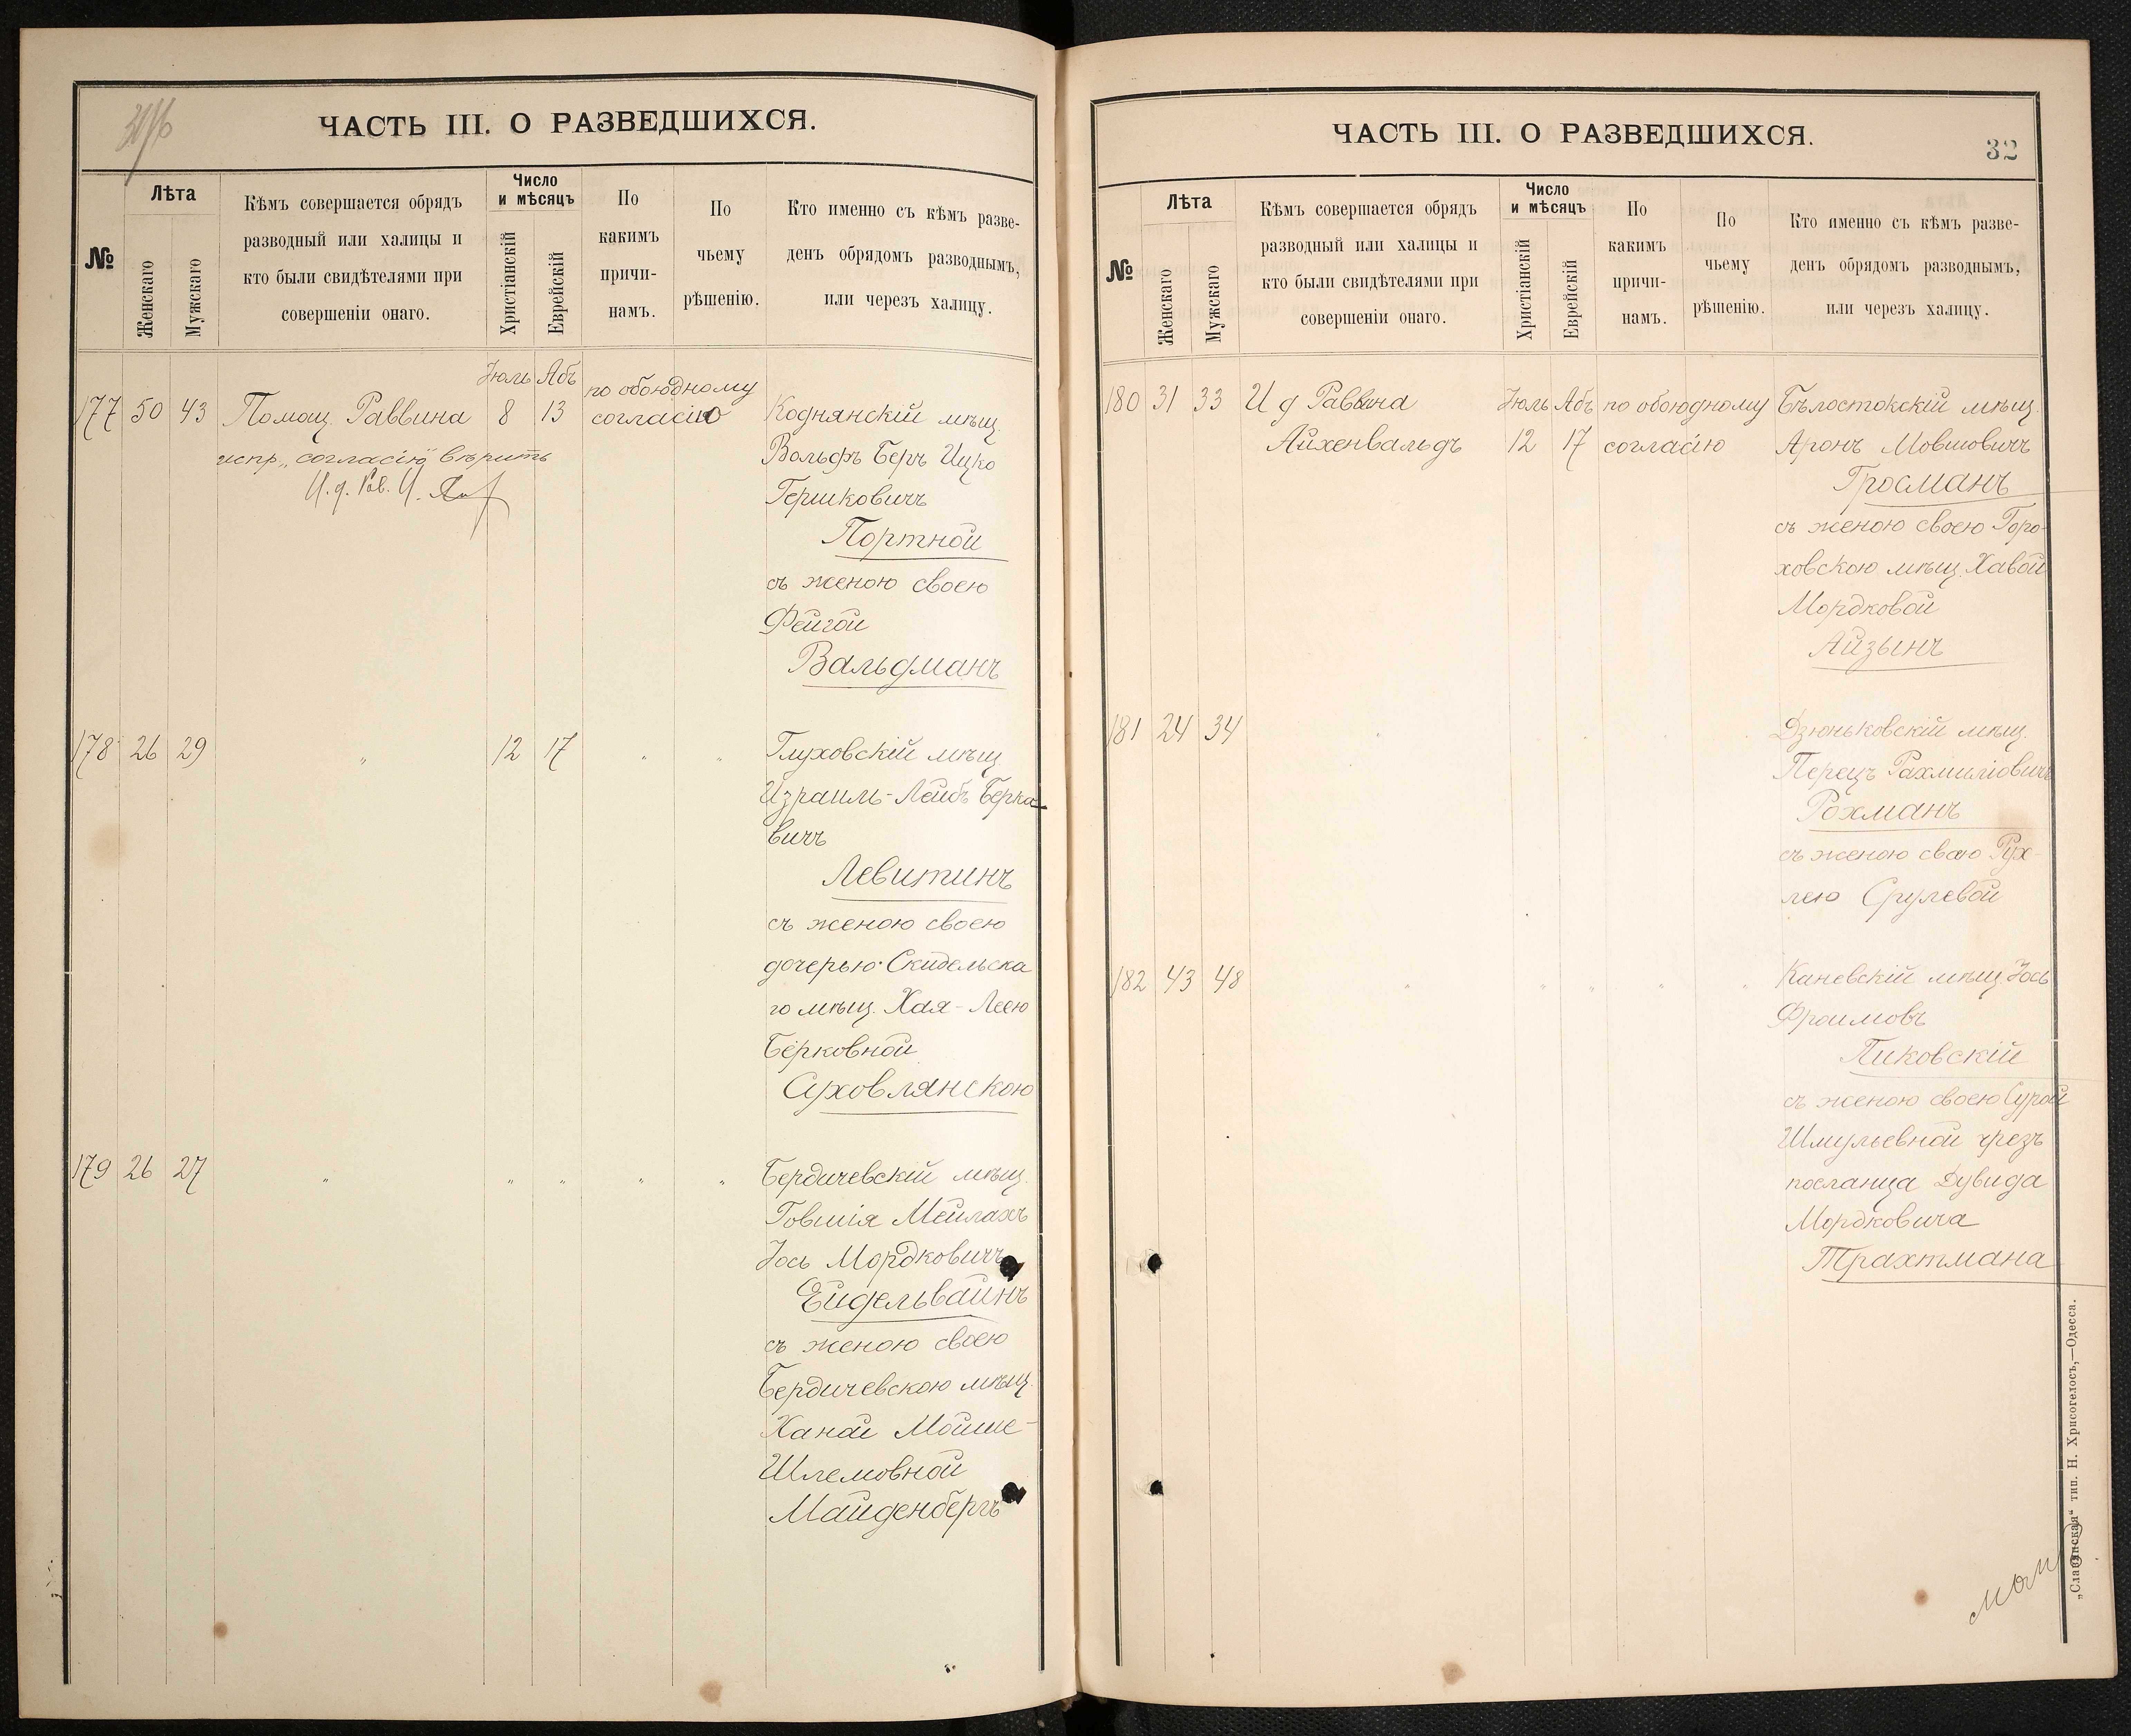 ЧАСТЬ III. О РАЗВЕДШИХСЯ.
№
Лѣта
Женскаго
Мужскаго
Кѣмъ совершается обрядъ
разводный или халицы и
кто были свидѣтелями при
совершеніи онаго.
Число
и мѣсяцъ
Христіанскій
Еврейскій
По
какимъ
причи-
намъ.
По
чьему
рѣшенію.
Кто именно съ кѣмъ разве-
денъ обрядомъ разводнымъ,
или черезъ халицу.
Іюль Абъ по обоюдному
177 50 43 Помощ. Раввина 8 13 согласію Коднянскій мѣщ.
испр. „согласію" вѣрить
И. д. Рав.
Вольфъ Беръ Ицко
Гершковичъ
Портной
съ женою своею
Фейгой
Вальдманъ
178 26 29 " 12 17 " " Глуховскій мѣщ.
Израиль-Лейбъ Берко-
вичъ
Левитинъ
съ женою своею
дочерью Скидельска
го мѣщ. Хая-Леею
Берковной
Суховлянскою
179 26 27 " " " " " Бердичевскій мѣщ.
Говшія Мейлахъ
Іось Мордковичъ
Ейдельвайнъ
съ женою своею
Бердичевскою мѣщ.
Ханой Мойше-
Шлемовной
Майденбергъ
ЧАСТЬ III. О РАЗВЕДШИХСЯ.
32
№
Лѣта
Женскаго
Мужскаго
Кѣмъ совершается обрядъ
разводный или халицы и
кто были свидѣтелями при
совершеніи онаго.
Число
и мѣсяцъ
Христіанскій
Еврейскій
По
какимъ
причи-
намъ.
По
чьему
рѣшенію.
Кто именно съ кѣмъ разве-
денъ обрядомъ разводнымъ,
или черезъ халицу.
180 31 33 И д Раввина Іюль Абъ по обоюдному Бѣлостокскій мѣщ.
Айхенвальдъ 12 17 согласію Аронъ Мовшовичъ
Гросманъ
съ женою своею Горо-
ховскою мѣщ. Хавой
Мордковой
Айзынъ
181 24 34 " " " " " Дзюньковскій мѣщ.
Перецъ Рахмиліовичъ
Рохманъ
съ женою своею Рух-
лею Срулевой
182 43 48 " " " " " Каневскій мѣщ. Іось
Фроимовъ
Пиковскій
съ женою своею Сурой
Шмульевной чрезъ
посланца Дувида
Мордковича
Трахтмана
„Славянская" тип. Н. Хрисогелосъ,—Одесса.